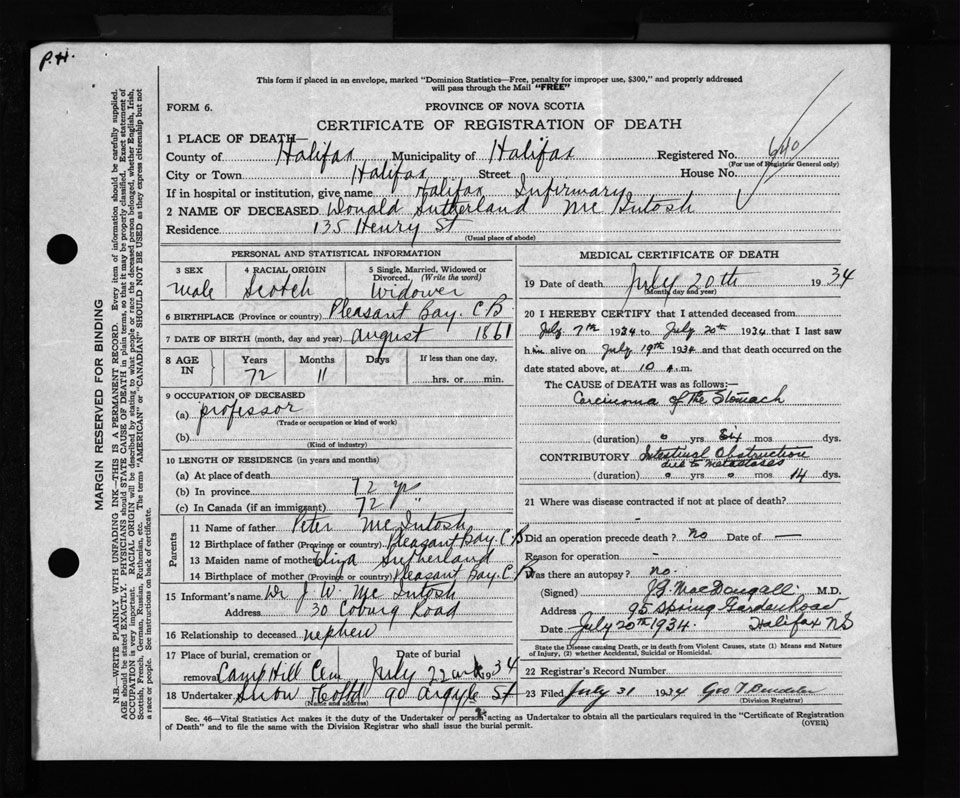 P.H.
This form if placed in an envelope, marked "Dominion Statistics—Free, penalty for improper use, $300," and properly addressed
will pass through the Mail "FREE"
FORM 6.
PROVINCE OF NOVA SCOTIA
CERTIFICATE OF REGISTRATION OF DEATH
1 PLACE OF DEATH—
County of Halifax Municipality of Halifax Registered No. 640
(For use of Registrar General only)
City or Town Halifax Street House No.
If in hospital or institution, give name Halifax Infirmary
2 NAME OF DECEASED Donald Sutherland McIntosh
Residence 135 Henry St
(Usual place of abode)
PERSONAL AND STATISTICAL INFORMATION
3 SEX 4 RACIAL ORIGIN 5 Single, Married, Widowed or Divorced. (Write the word)
male Scotch Widower
6 BIRTHPLACE (Province or country) Pleasant Bay. C.B
7 DATE OF BIRTH (month, day and year) August 1861
8 AGE IN Years Months Days If less than one day,
72 11 hrs. or min.
9 OCCUPATION OF DECEASED
(a) professor
(Trade or occupation or kind of work)
(b)
(Kind of industry)
10 LENGTH OF RESIDENCE (in years and months)
(a) At place of death
(b) In province 72 yr
(c) In Canada (if an immigrant) 72 "
Parents
11 Name of father Peter McIntosh
12 Birthplace of father (Province or country) Pleasant Bay. C.B
13 Maiden name of mother Eliza Sutherland
14 Birthplace of mother (Province or country) Pleasant Bay. C.B
15 Informant's name Dr J. W. McIntosh
Address 30 Coburg Road
16 Relationship to deceased nephew
17 Place of burial, cremation or removal Date of burial
Camp Hill Cem July 22 1934
18 Undertaker Snow 90 Argyle St
(Name and address)
MEDICAL CERTIFICATE OF DEATH
19 Date of death July 20th 1934
(Month, day and year)
20 I HEREBY CERTIFY that I attended deceased from
July 7th 1934 to July 20th 1934 that I last saw
him alive on July 19th 1934 and that death occurred on the
date stated above, at 10 A.m.
The CAUSE of DEATH was as follows:—
Carcinoma of the Stomach
(duration) o yrs Six mos dys.
CONTRIBUTORY Intestinal Obstruction
due to metastases
(duration) o yrs o mos 14 dys.
21 Where was disease contracted if not at place of death?
Did an operation precede death? no Date of —
Reason for operation -
Was there an autopsy? no.
(Signed) J.G. MacDougall M.D.
Address 95 Spring Garden Road
Date July 20th 1934. Halifax NS
State the Disease causing Death, or in death from Violent Causes, state (1) Means and Nature
of Injury, (2) whether Accidental, Suicidal or Homicidal.
22 Registrar's Record Number
23 Filed July 31 1934 Geo T
(Division Registrar)
Sec. 46—Vital Statistics Act makes it the duty of the Undertaker or person acting as Undertaker to obtain all the particulars required in the "Certificate of Registration
of Death" and to file the same with the Division Registrar who shall issue the burial permit. (OVER)
MARGIN RESERVED FOR BINDING
N.B.—WRITE PLAINLY WITH UNFADING INK—THIS IS A PERMANENT RECORD. Every item of information should be carefully supplied.
AGE should be stated EXACTLY. PHYSICIANS should STATE CAUSE OF DEATH in plain terms, so that it may be properly classified. Exact statement of
OCCUPATION is very important. RACIAL ORIGIN will be described by stating to what people or race the deceased person belonged, whether English, Irish,
Scottish, French, German, Russian, Ruthenian, etc. The terms "AMERICAN" or "CANADIAN" SHOULD NOT BE USED as they express citizenship but not
a race or people. See instructions on back of certificate.